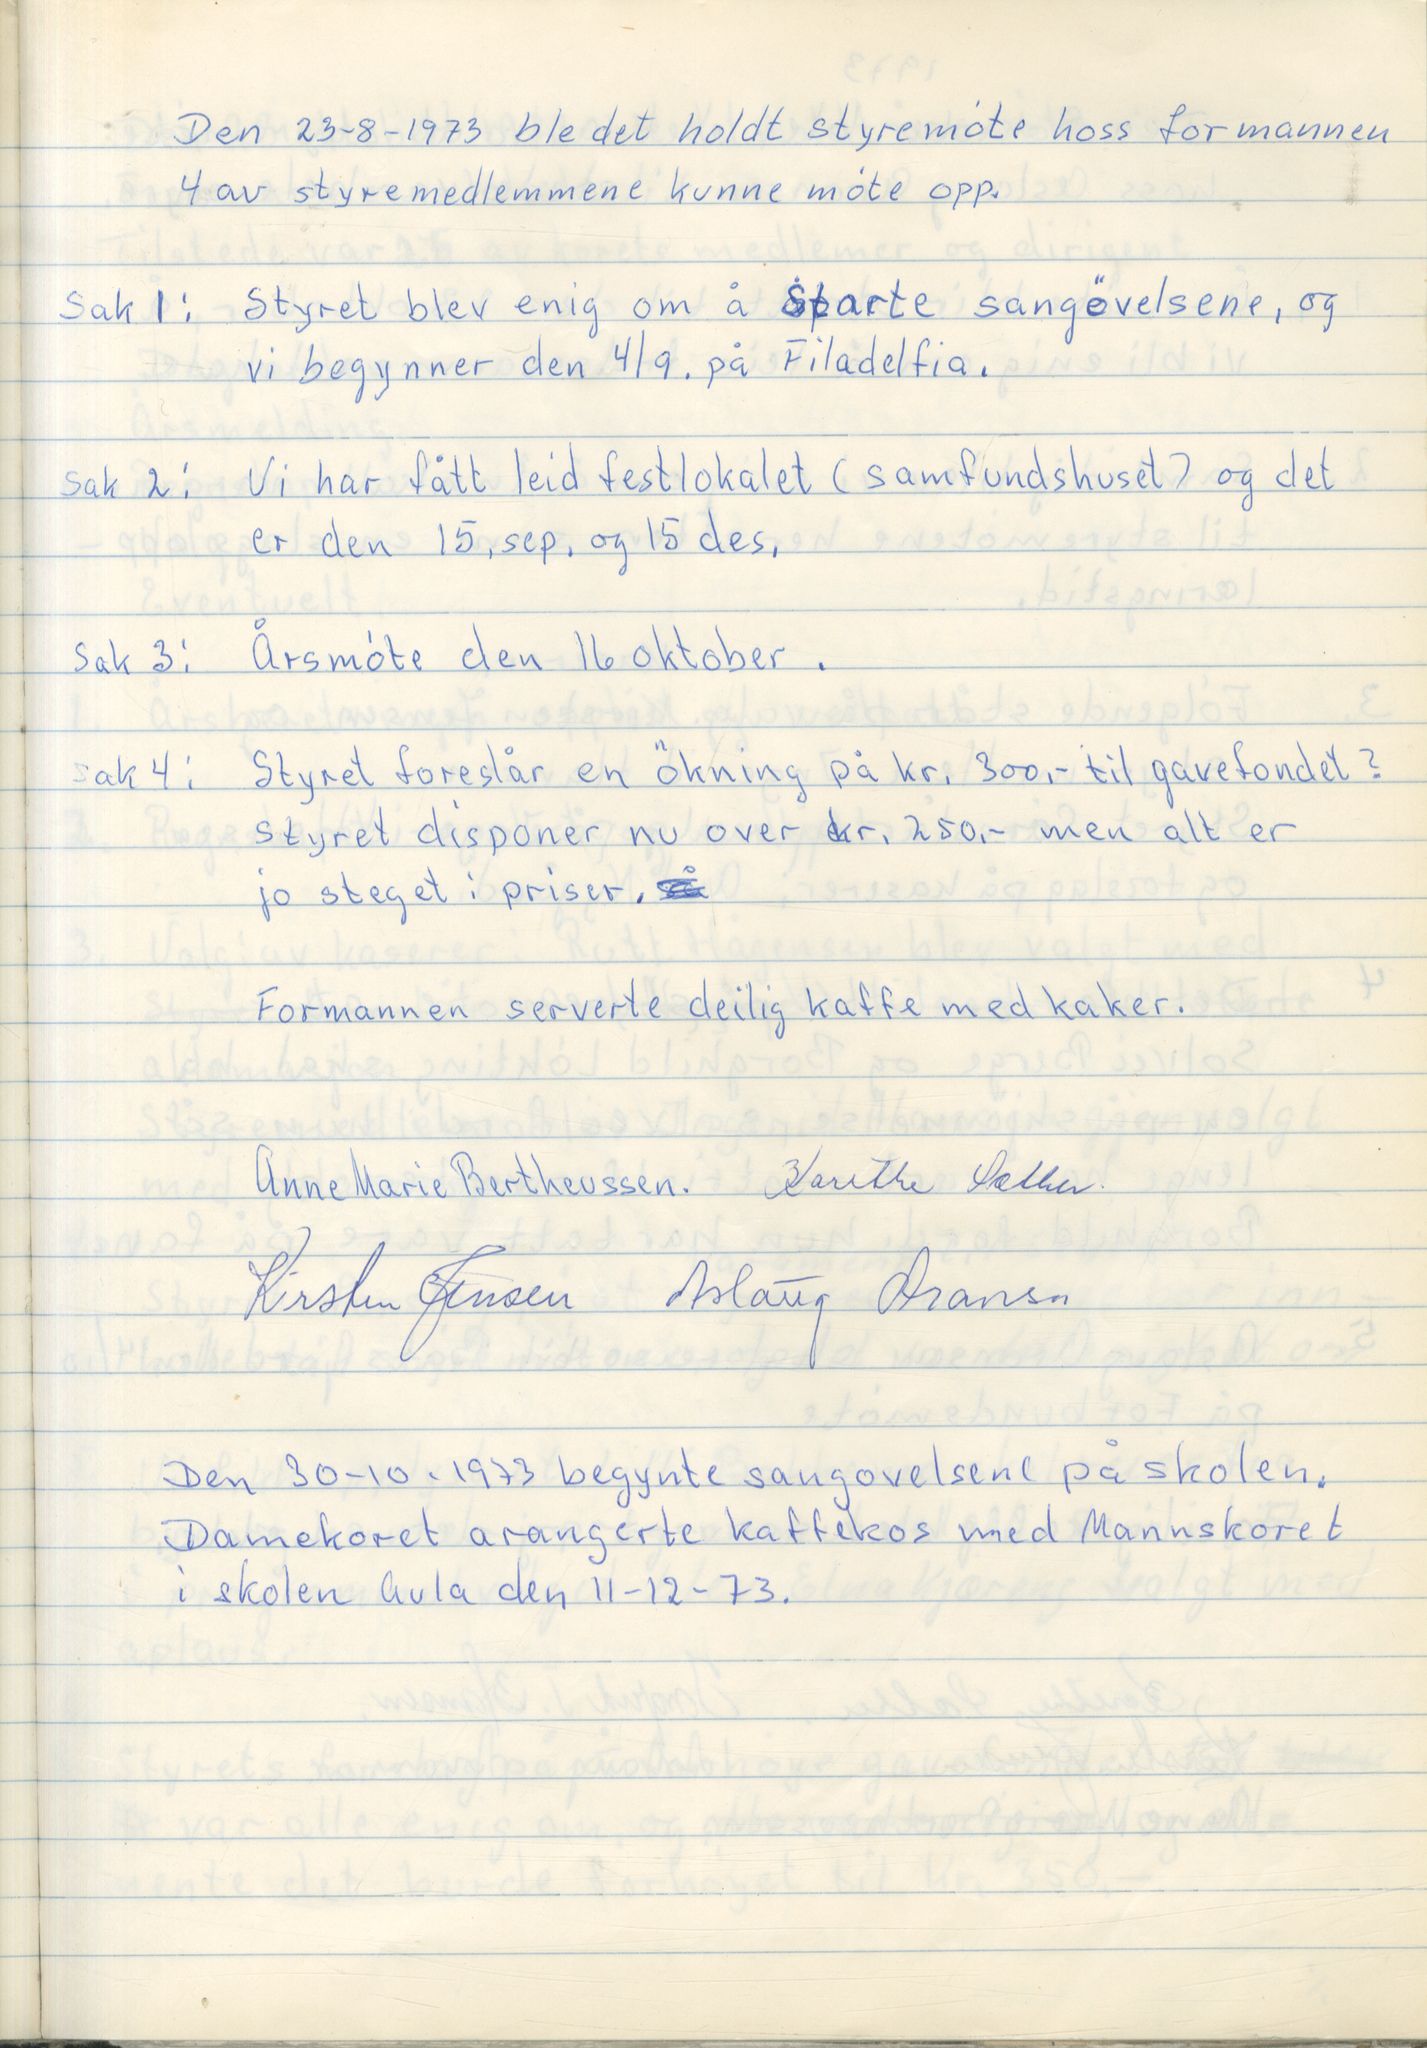 Den 23-8-1973 ble det holdt styremóte hoss formannen
4 av styremedlemmene kunne móte opp.
Sak 1: Styret blev enig om å starte sangövelsene, og
vi begynner den 4/9. på Filadelfia.
Sak 2: Vi har fått leid festlokalet (samfundshuset) og det
er den 15, sep. og 15 des,
Sak 3: Årsmóte den 16 oktober.
Sak 4: Styret foreslår en ökning på kr. 300,- til gavefondet?
Styret disponer nu over kr. 250,- men alt er
jo steget i priser. så
Formannen serverte deilig kaffe med kaker.
Anne Marie Bertheussen. Karethe Sæther.
Kirsten Jensen Aslaug
Den 30-10-1973 begynte sangovelsene på skolen.
Damekoret arangerte kaffekos med Mannskoret
i skolen Aula den 11-12-73.